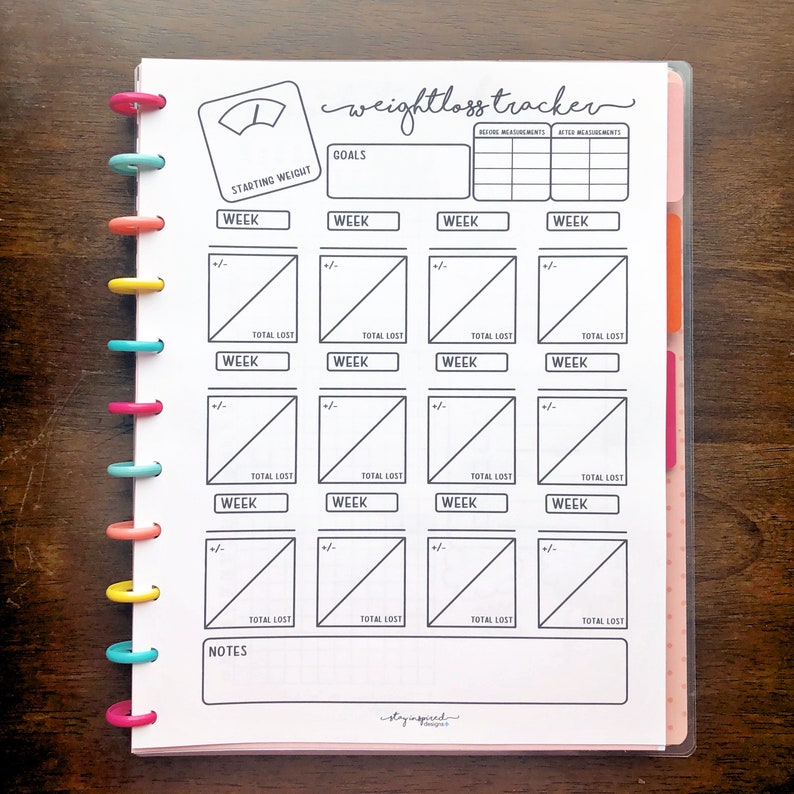 weightloss tracker
STARTING WEIGHT
GOALS
BEFORE MEASUREMENTS AFTER MEASUREMENTS
WEEK WEEK WEEK WEEK
+/- +/- +/- +/-
TOTAL LOST TOTAL LOST TOTAL LOST TOTAL LOST
WEEK WEEK WEEK WEEK
+/- +/- +/- +/-
TOTAL LOST TOTAL LOST TOTAL LOST TOTAL LOST
WEEK WEEK WEEK WEEK
+/- +/- +/- +/-
TOTAL LOST TOTAL LOST TOTAL LOST TOTAL LOST
NOTES
stay inspired
designs